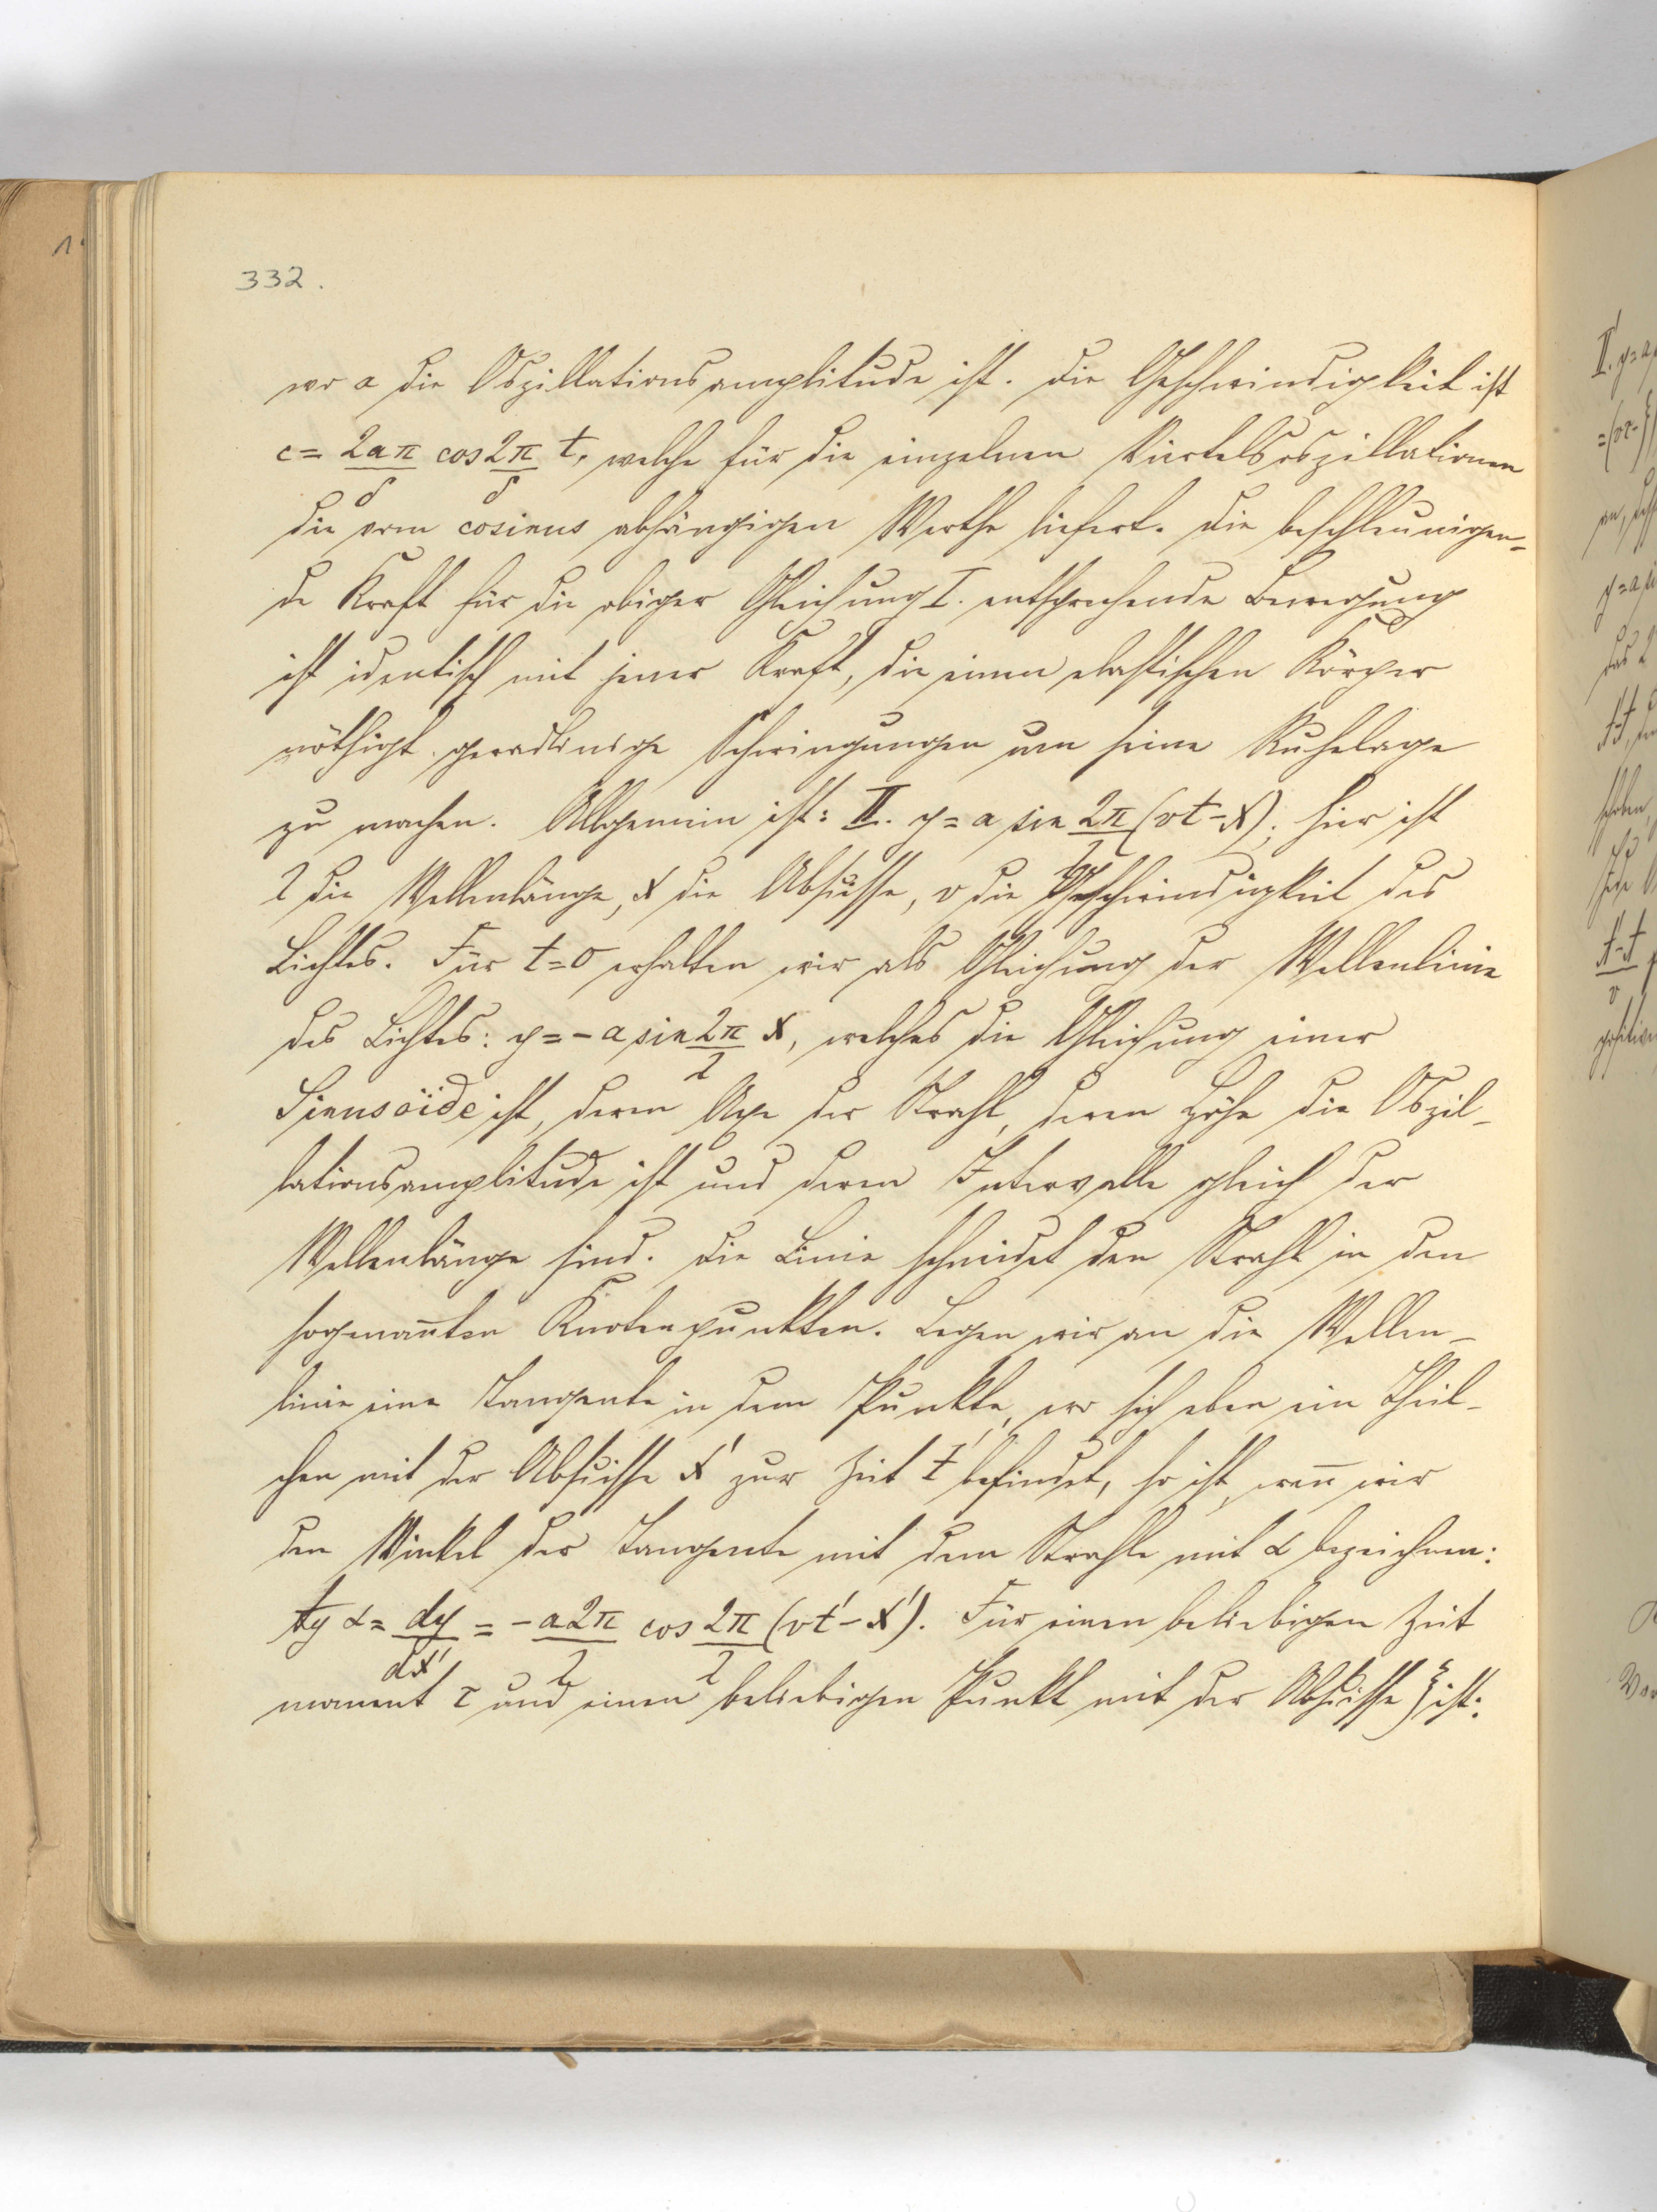 332.
wo a die Oszillationsamplitude ist. Die Geschwindigkeit ist
c = 2aπ/δ cos 2π/δ t, welche für die einzelnen Viertelsoszillationen
die vom cosinus abhängigen Werthe liefert. Die beschleunigen-
de Kraft für die obiger Gleichung I. entsprechende Bewegung
ist identisch mit jener Kraft, die einen elastischen Körper
nöthigt geradlinige Schwingungen um seine Ruhelage
zu machen. Allgemein ist: II. y = a sin 2π/l (vt - x); hier ist
l die Wellenlänge, x die Abscisse, v die Geschwindigkeit des
Lichtes. Für t=0 erhalten wir als Gleichung der Wellenlinie
des Lichtes: y = - a sin 2π/l x, welches die Gleichung einer
Sinusoide ist, deren Axe der Strahl, deren Höhe die Oszil-
lationsamplitude ist und deren Intervalle gleich der
Wellenlänge sind. Die Linie schneidet den Strahl in den
sogenan̄ten Knotenpunkten. Legen wir an die Wellen-
linie eine Tangente in dem Punkte, wo sich eben ein Theil-
chen mit der Abscisse x' zur Zeit t' befindet, so ist, wen̄ wir
den Winkel der Tangente mit dem Strahle mit α bezeichnen:
tg α = dy/dx' = - a2π/l cos 2π/l (vt' - x'). Für einen beliebigen Zeit
moment τ und einen beliebigen Punkt mit der Abscisse ξ ist: